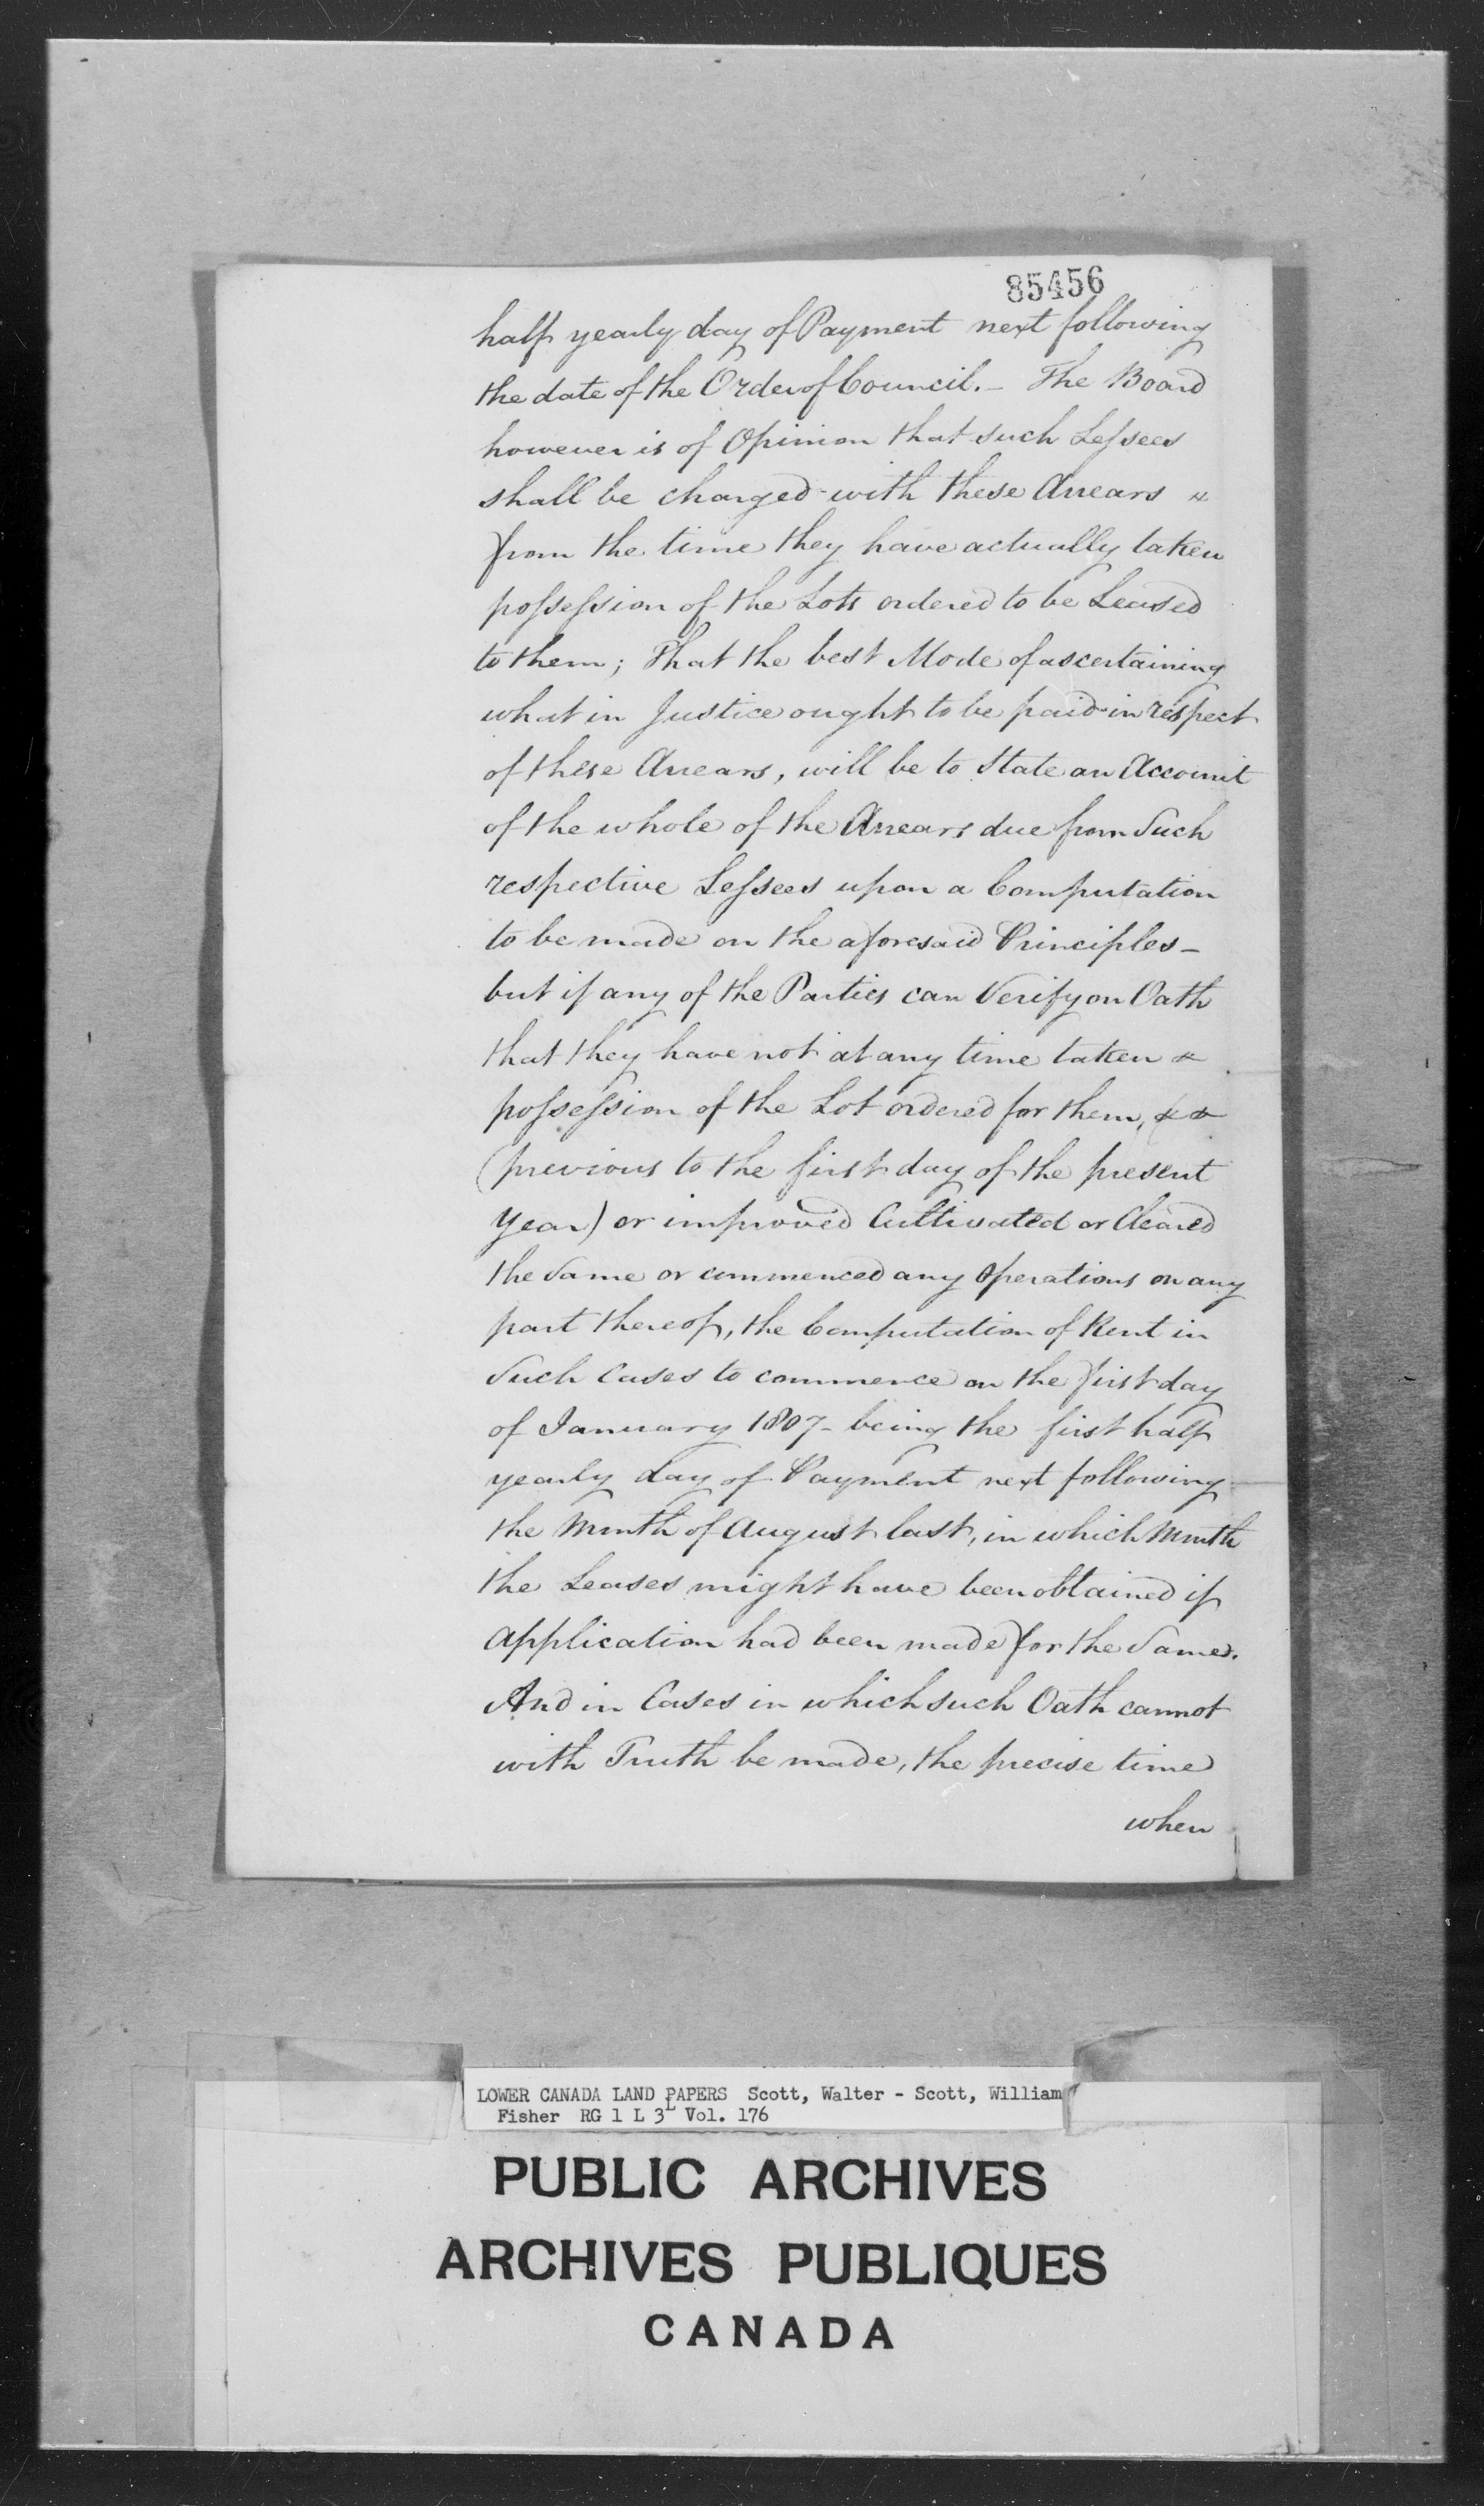 85456
half yearly day of Payment next following
the date of the Order of Council. – The Board
however is of Opinion that such Leſsees
shall be charged with these Arrears
from the time they have actually taken
poſseſsion of the Lots ordered to be Leased
to them; That the best Mode of ascertaining
what in Justice ought to be paid in respect
of these Arrears, will be to State an Account
of the whole of the Arrears due from Such
respective Leſsees upon a Computation
to be made on the aforesaid Principles –
but if any of the Parties can Verify on Oath
that they have not at any time taken
poſseſsion of the Lot ordered for them,
(previous to the first day of the present
Year) or improved Cultivated or Cleared
the Same or commenced any Operations on any
part thereof, the Computation of Rent in
Such Cases to commence on the first day
of January 1807 – being the first half
yearly day of Payment next following
the Month of August last, in which Month
the Leases might have been obtained if
Application had been made for the Same.
And in Cases in which such Oath cannot
with Truth be made, the precise time
when
LOWER CANADA LAND PAPERS Scott, Walter - Scott, William
Fisher RG 1 L 3L Vol. 176
PUBLIC ARCHIVES
ARCHIVES PUBLIQUES
CANADA